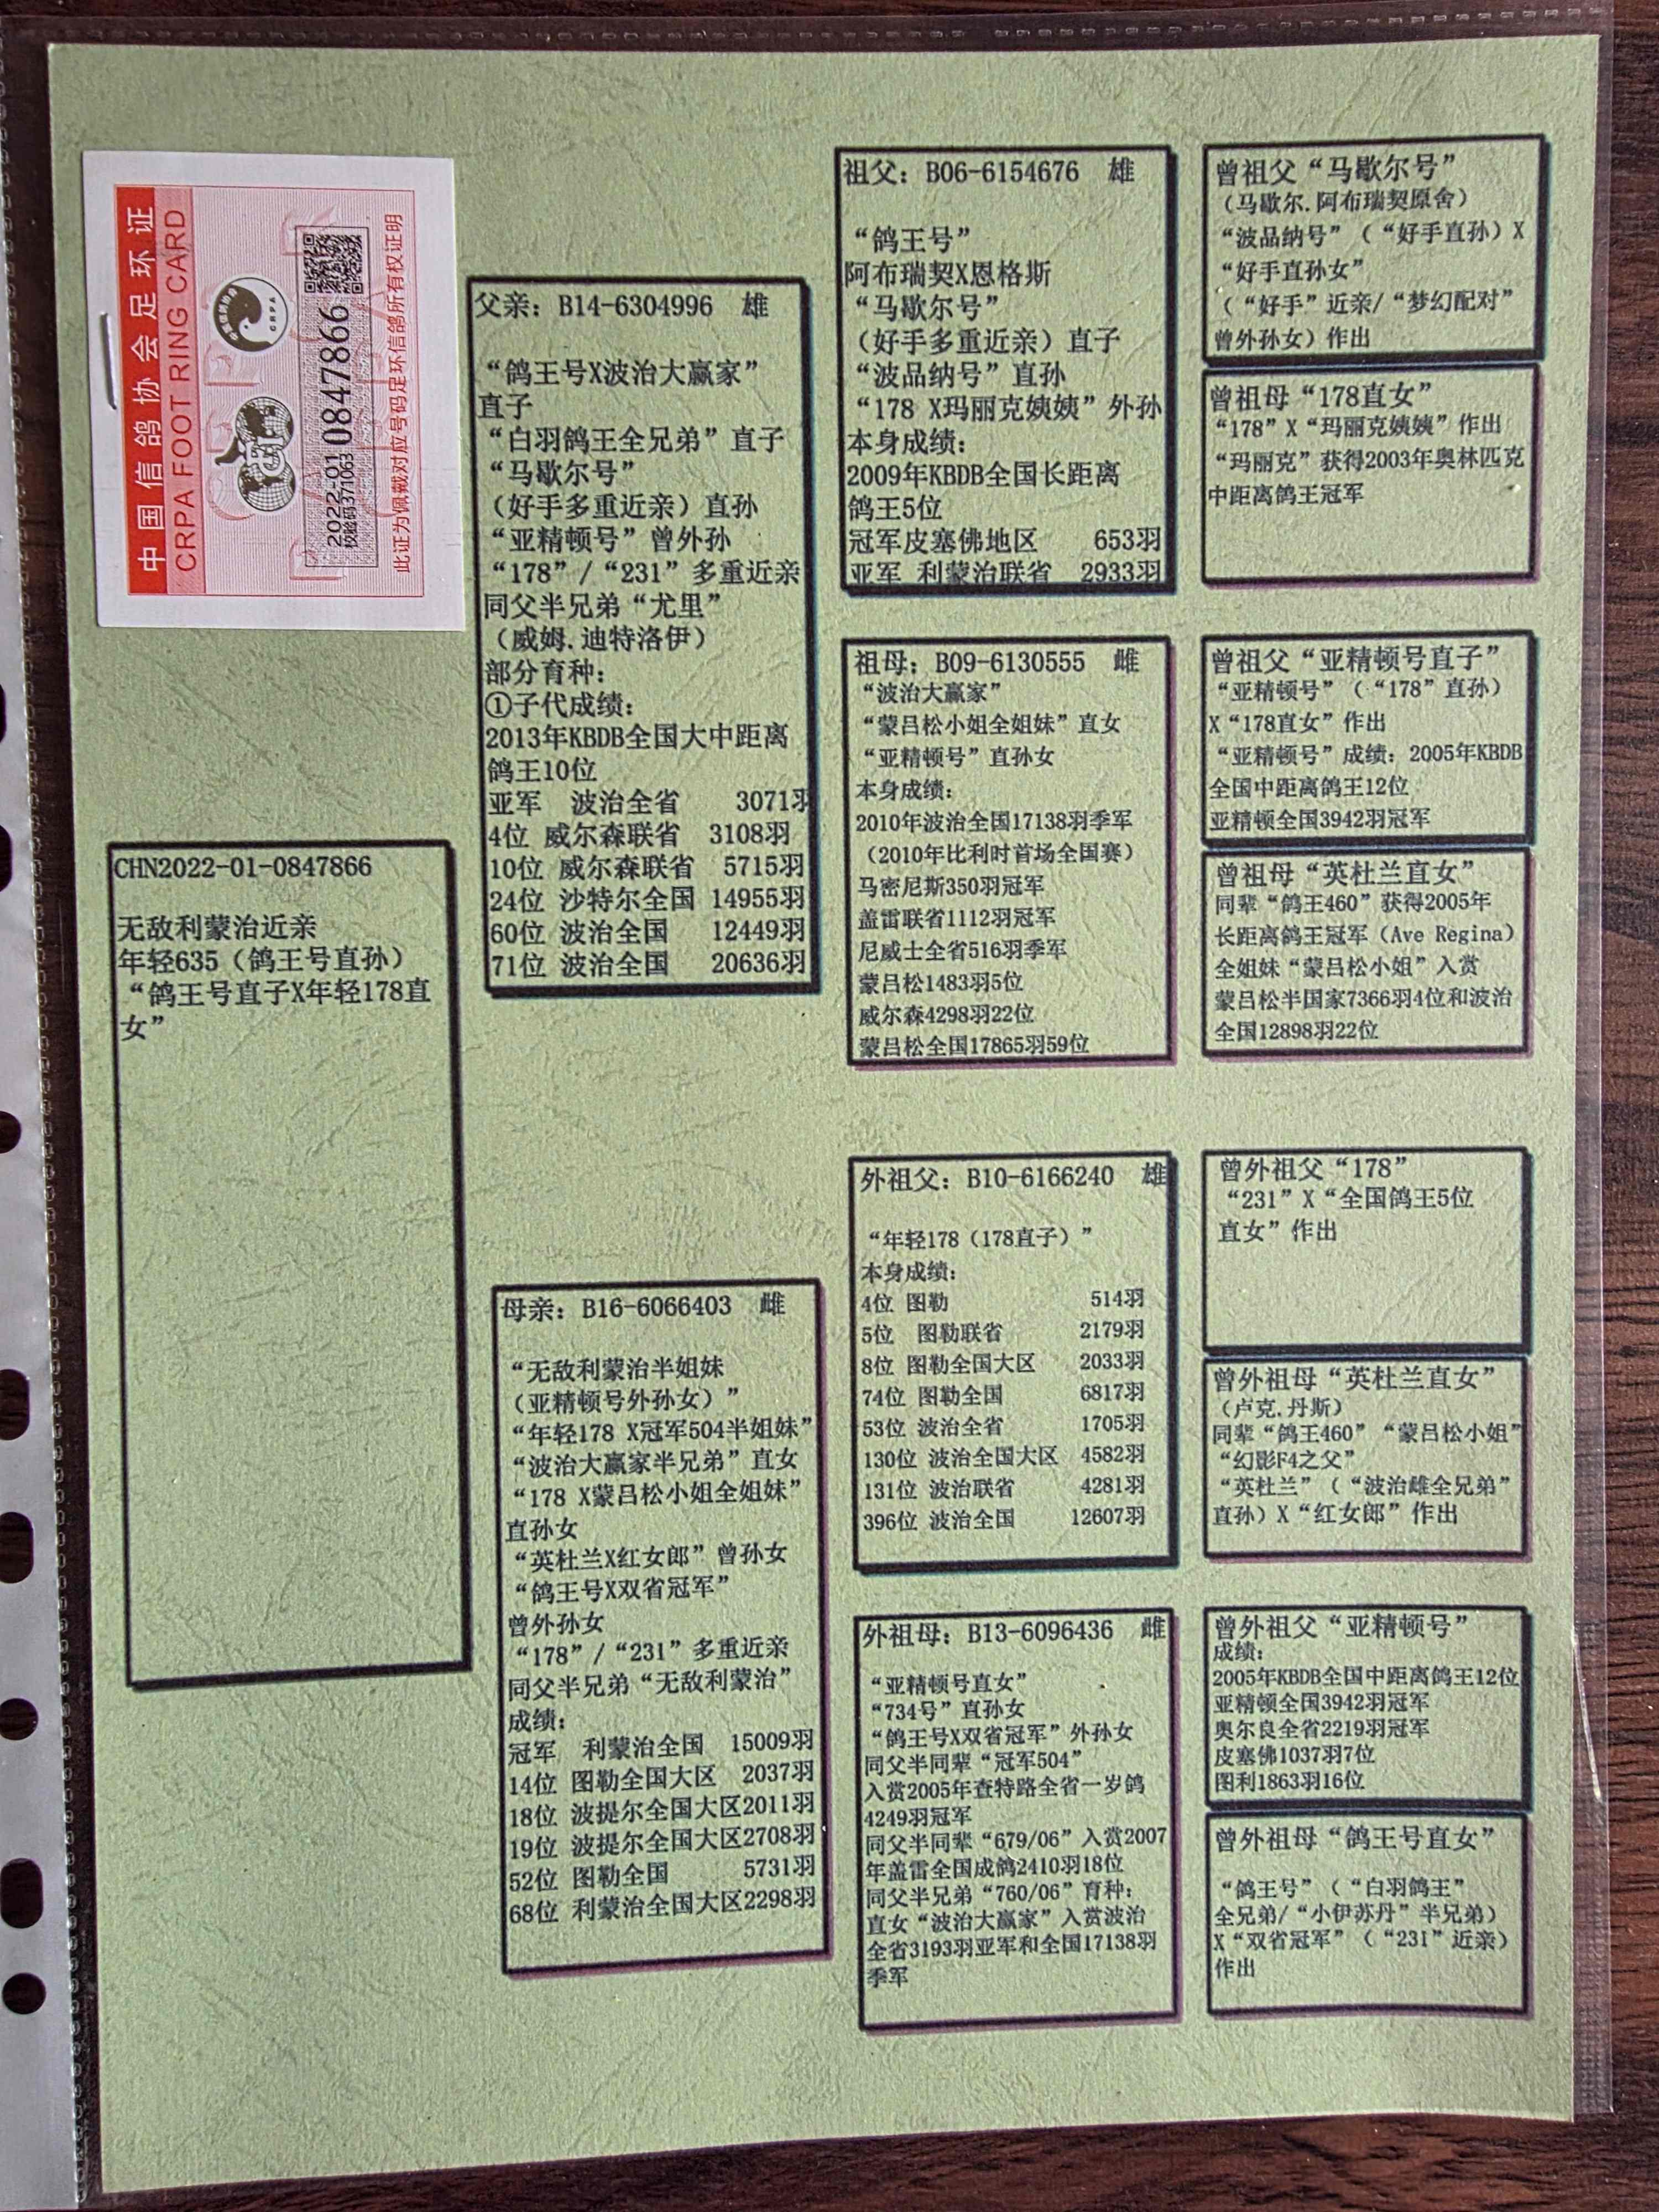 中国信鸽协会足环证
CRPA FOOT RING CARD
CRPA
2022-01 0847866
校验码371063
此证为佩戴对应号码足环信鸽所有权证明
CHN2022-01-0847866
无敌利蒙治近亲
年轻635（鸽王号直孙）
“鸽王号直子X年轻178直
女”
父亲：B14-6304996 雄
“鸽王号X波治大赢家”
直子
“白羽鸽王全兄弟”直子
“马歇尔号”
（好手多重近亲）直孙
“亚精顿号”曾外孙
“178”/“231”多重近亲
同父半兄弟“尤里”
（威姆.迪特洛伊）
部分育种：
①子代成绩：
2013年KBDB全国大中距离
鸽王10位
亚军 波治全省 3071羽
4位 威尔森联省 3108羽
10位 威尔森联省 5715羽
24位 沙特尔全国 14955羽
60位 波治全国 12449羽
71位 波治全国 20636羽
母亲：B16-6066403 雌
“无敌利蒙治半姐妹
（亚精顿号外孙女）”
“年轻178 X冠军504半姐妹”
“波治大赢家半兄弟”直女
“178 X蒙吕松小姐全姐妹”
直孙女
“英杜兰X红女郎”曾孙女
“鸽王号X双省冠军”
曾外孙女
“178”/“231”多重近亲
同父半兄弟“无敌利蒙治”
成绩：
冠军 利蒙治全国 15009羽
14位 图勒全国大区 2037羽
18位 波提尔全国大区2011羽
19位 波提尔全国大区2708羽
52位 图勒全国 5731羽
68位 利蒙治全国大区2298羽
祖父：B06-6154676 雄
“鸽王号”
阿布瑞契X恩格斯
“马歇尔号”
（好手多重近亲）直子
“波品纳号”直孙
“178 X玛丽克姨姨”外孙
本身成绩：
2009年KBDB全国长距离
鸽王5位
冠军皮塞佛地区 653羽
亚军 利蒙治联省 2933羽
祖母：B09-6130555 雌
“波治大赢家”
“蒙吕松小姐全姐妹”直女
“亚精顿号”直孙女
本身成绩：
2010年波治全国17138羽季军
（2010年比利时首场全国赛）
马密尼斯350羽冠军
盖雷联省1112羽冠军
尼威士全省516羽季军
蒙吕松1483羽5位
威尔森4298羽22位
蒙吕松全国17865羽59位
外祖父：B10-6166240 雄
“年轻178（178直子）”
本身成绩：
4位 图勒 514羽
5位 图勒联省 2179羽
8位 图勒全国大区 2033羽
74位 图勒全国 6817羽
53位 波治全省 1705羽
130位 波治全国大区 4582羽
131位 波治联省 4281羽
396位 波治全国 12607羽
外祖母：B13-6096436 雌
“亚精顿号直女”
“734号”直孙女
“鸽王号X双省冠军”外孙女
同父半同辈“冠军504”
入赏2005年查特路全省一岁鸽
4249羽冠军
同父半同辈“679/06”入赏2007
年盖雷全国成鸽2410羽18位
同父半兄弟“760/06”育种：
直女“波治大赢家”入赏波治
全省3193羽亚军和全国17138羽
季军
曾祖父“马歇尔号”
（马歇尔.阿布瑞契原舍）
“波品纳号”（“好手直孙）X
“好手直孙女”
（“好手”近亲/“梦幻配对”
曾外孙女）作出
曾祖母“178直女”
“178”X“玛丽克姨姨”作出
“玛丽克”获得2003年奥林匹克
中距离鸽王冠军
曾祖父“亚精顿号直子”
“亚精顿号”（“178”直孙）
X“178直女”作出
“亚精顿号”成绩：2005年KBDB
全国中距离鸽王12位
亚精顿全国3942羽冠军
曾祖母“英杜兰直女”
同辈“鸽王460”获得2005年
长距离鸽王冠军（Ave Regina）
全姐妹“蒙吕松小姐”入赏
蒙吕松半国家7366羽4位和波治
全国12898羽22位
曾外祖父“178”
“231”X“全国鸽王5位
直女”作出
曾外祖母“英杜兰直女”
（卢克.丹斯）
同辈“鸽王460”“蒙吕松小姐”
“幻影F4之父”
“英杜兰”（“波治雌全兄弟”
直孙）X“红女郎”作出
曾外祖父“亚精顿号”
成绩：
2005年KBDB全国中距离鸽王12位
亚精顿全国3942羽冠军
奥尔良全省2219羽冠军
皮塞佛1037羽7位
图利1863羽16位
曾外祖母“鸽王号直女”
“鸽王号”（“白羽鸽王”
全兄弟/“小伊苏丹”半兄弟）
X“双省冠军”（“231”近亲）
作出